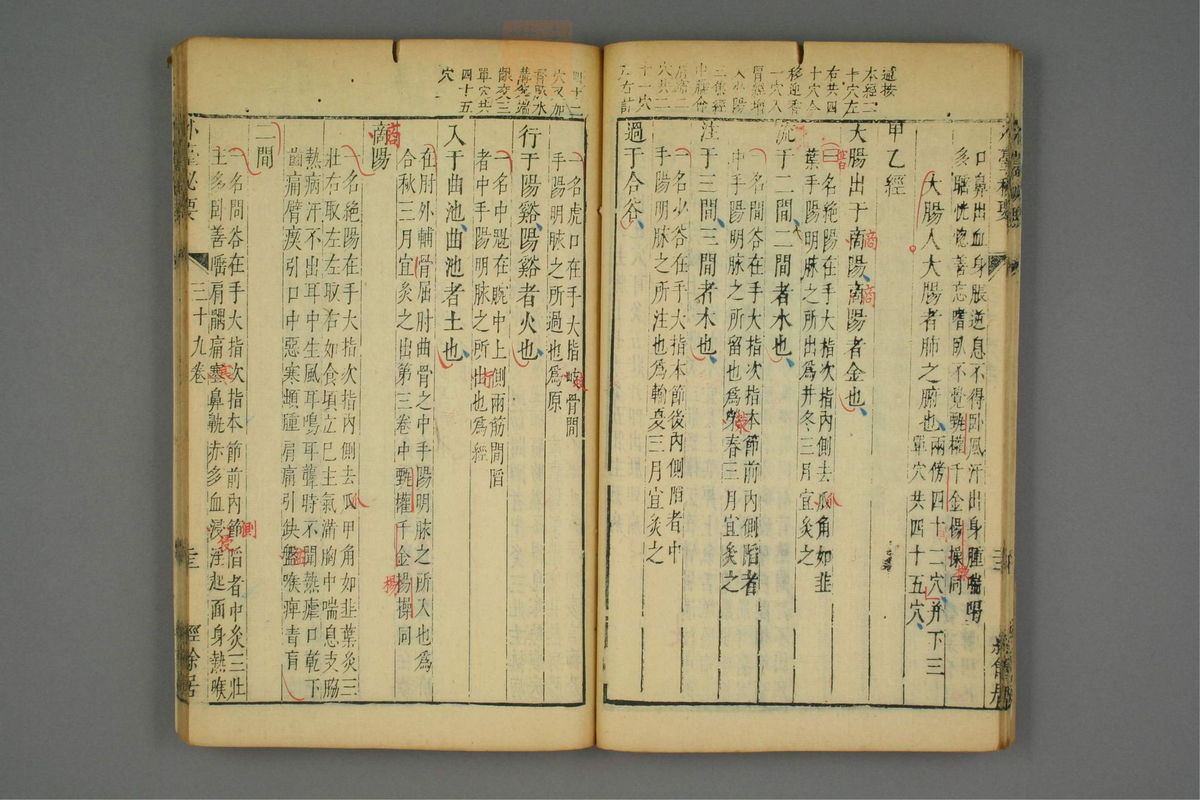 口鼻出血身脹逆息不得卧風汗出身腫喘喝
多睡恍惚善忘嗜卧不覺甄權千金楊操同
大腸人大腸者肺之腑也兩傍四十二穴并下三
單穴共四十五穴
甲乙經
大腸出于商陽商陽者金也
一名絶陽在手大指次指內側去爪角如韭
葉手陽明脉之所出為井冬三月宜灸之
流于二間二間者水也
一名間谷在手大指次指本節前內側䧟者
中手陽明脉之所留也為榮春三月宜灸之
注于三間三間者木也
一名少谷在手大指本節後內側䧟者中
手陽明脉之所注也為輸夏三月宜灸之
過于合谷
謹按
本經二
十穴左
右共四
十穴今
移迎香
一穴入
四十二
穴又加
單穴共
四十五
穴
一名虎口在手大指岐骨間
手陽明脉之所過也為原
行于陽谿陽谿者火也
一名中魁在腕中上側兩筋間䧟
者中手陽明脉之所出也為經
入于曲池曲池者土也
在肘外輔骨屈肘曲骨之中手陽明脉之所入也為
合秋三月宜灸之出第三卷中甄權千金楊操同
商陽
一名絶陽在手大指次指內側去爪甲角如韭葉灸三
壯右取左左取右如食頃立已主氣滿胸中喘息支脇
熱病汗不出耳中生風耳鳴耳聾時不聞熱瘧口乾下
齒痛臂瘈引口中惡寒䪼腫肩痛引缺盤喉痹青盲
二間
一名間谷在手大指次指本節前內節䧟者中灸三壯
主多卧善唾肩髃痛寒鼻鼽赤多血浸淫起面身熱喉
外臺秘要
三十九卷
經餘居